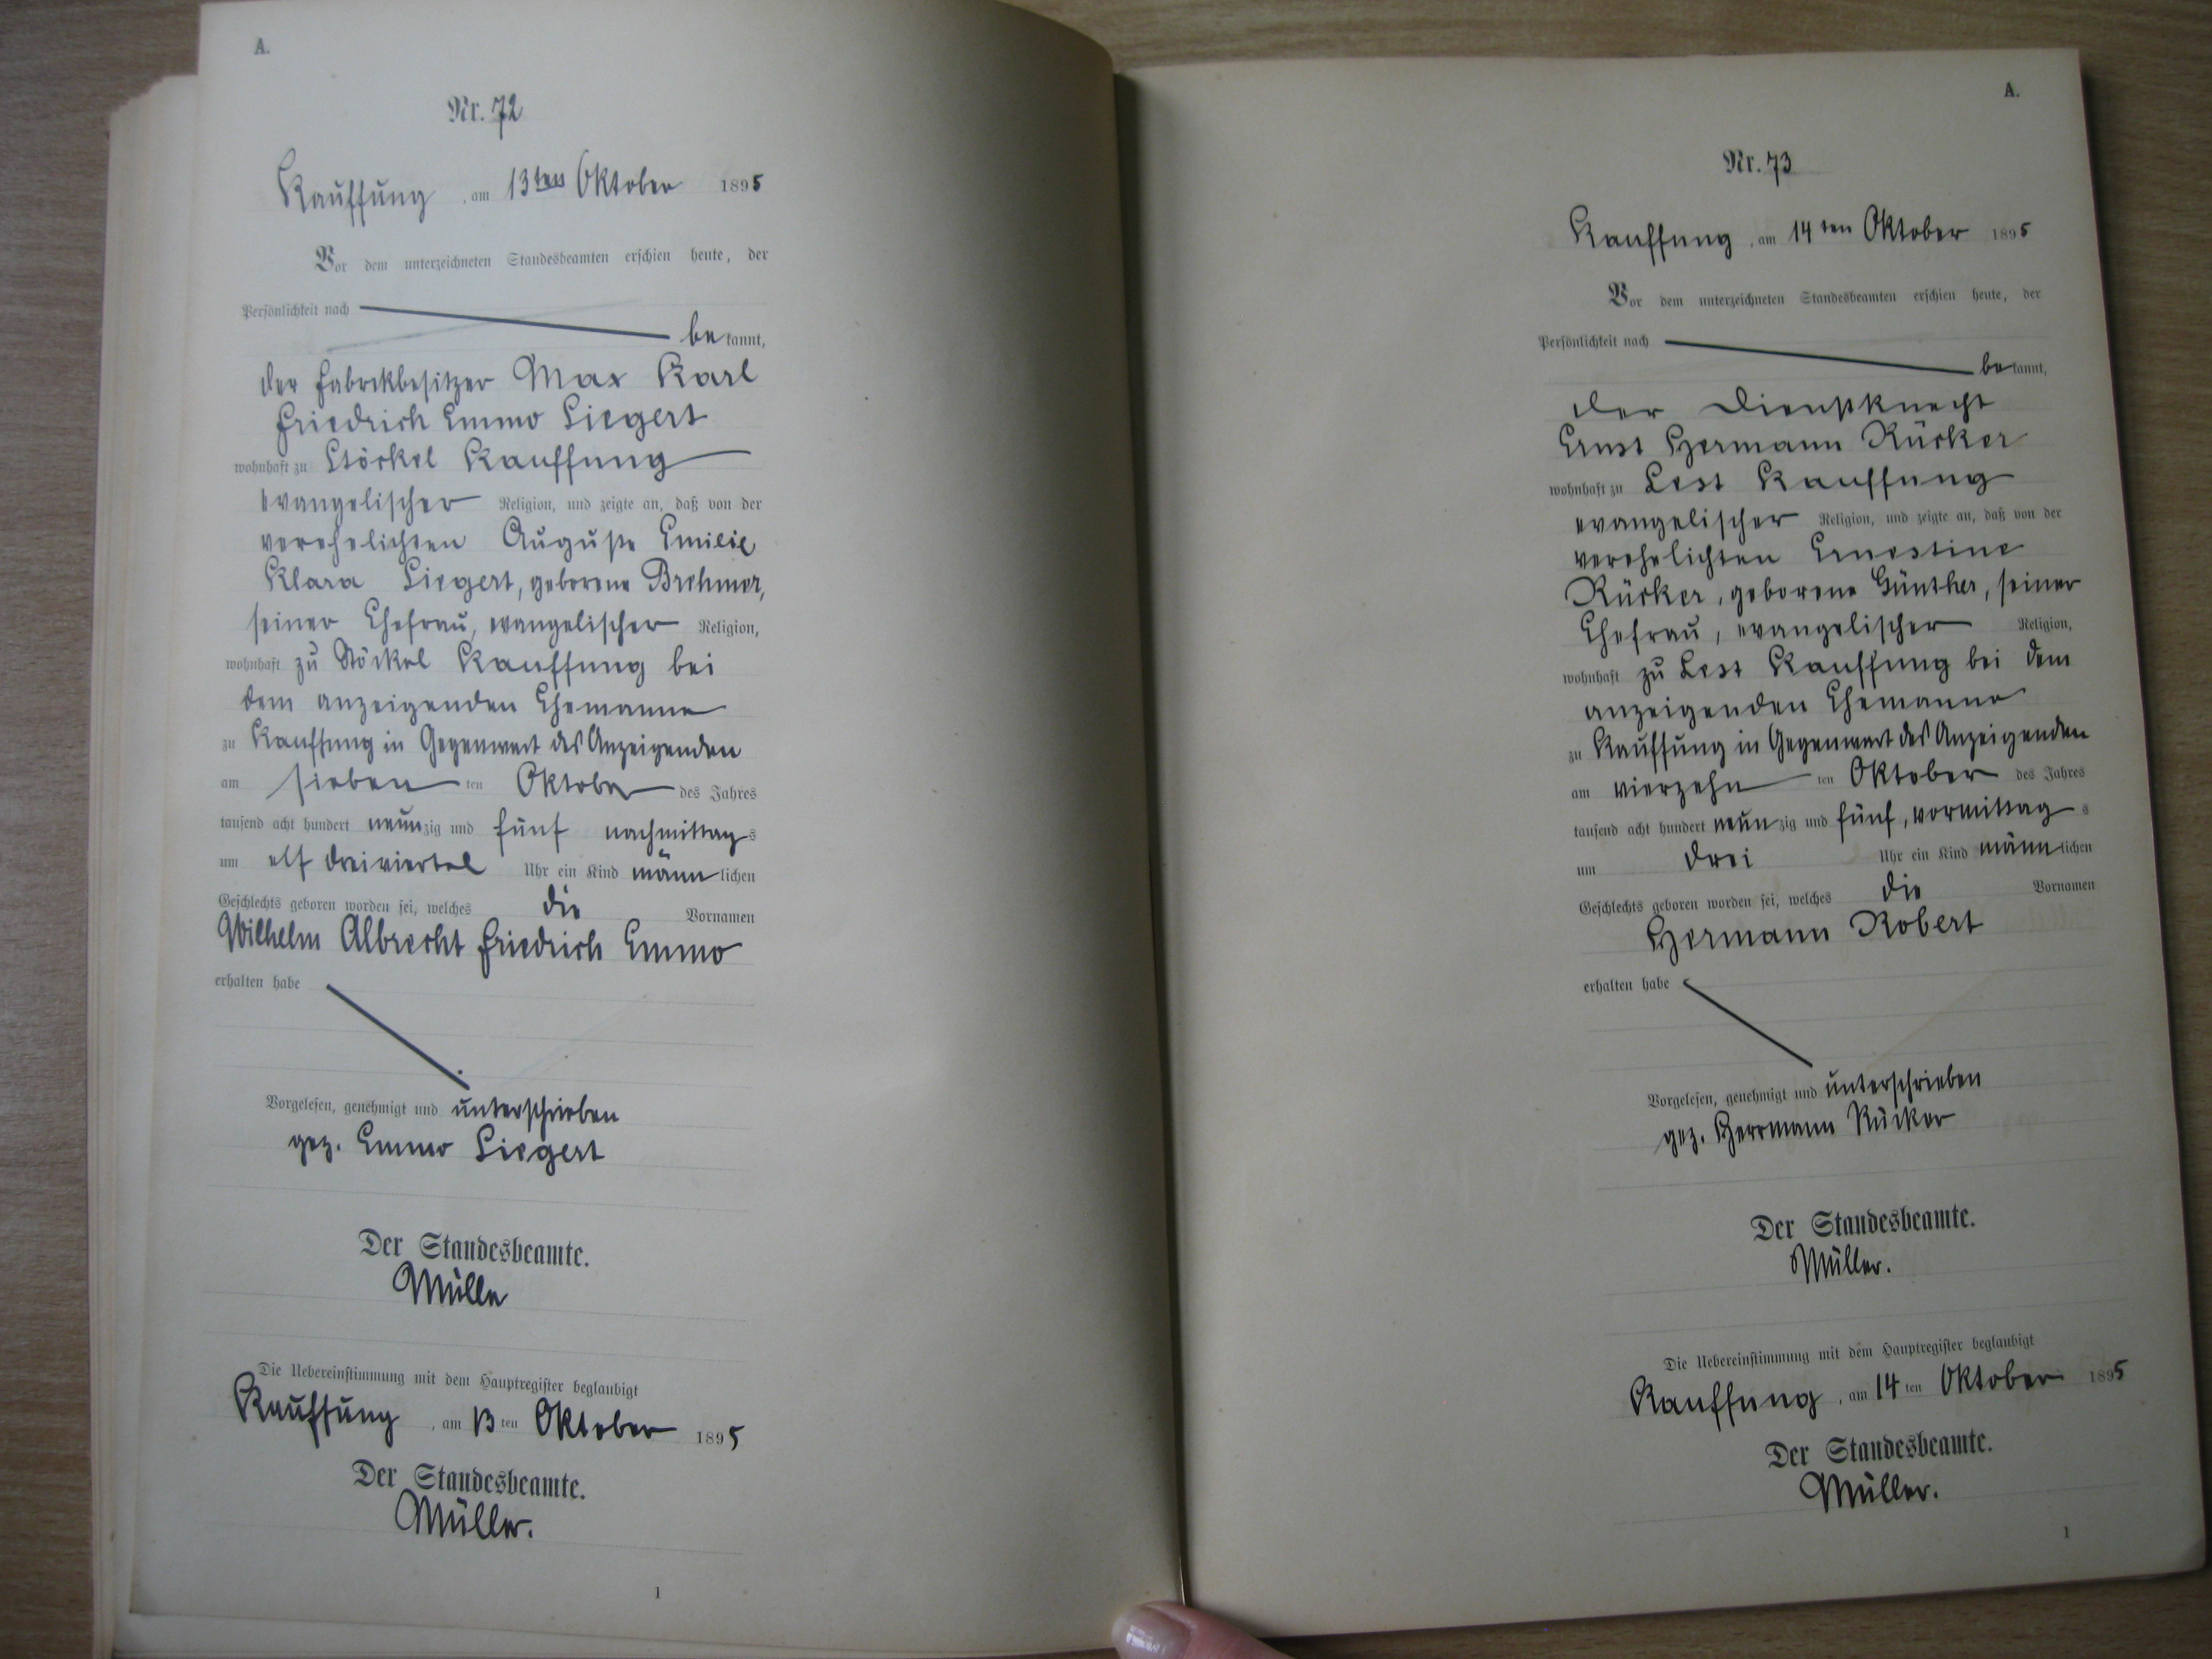 A.
Nr. 72
Kauffung, am 13ten Oktober 1895
Vor dem unterzeichneten Standesbeamten erschien heute, der
Persönlichkeit nach
bekannt,
der Fabrikbesitzer Max Karl
Friedrich Emmo Siegert
wohnhaft zu Stöckel Kauffung
evangelischer Religion, und zeigte an, daß von der
verehelichten Auguste Emilie
Klara Siegert, geborene Brehmer,
seiner Ehefrau, evangelischer Religion,
wohnhaft zu Stöckel Kauffung bei
dem anzeigenden Ehemanne
zu Kauffung in Gegenwart des Anzeigenden
am siebenten Oktober des Jahres
tausend acht hundert neunzig und fünf nachmittags
um elf dreiviertel Uhr ein Kind männlichen
Geschlechts geboren worden sei, welches die Vornamen
Wilhelm Albrecht Friedrich Emmo
erhalten habe
Vorgelesen, genehmigt und unterschrieben
gez. Emmo Siegert
Der Standesbeamte.
Müller
Die Uebereinstimmung mit dem Hauptregister beglaubigt
Kauffung, am 13ten Oktober 1895
Der Standesbeamte.
Müller.
1
A.
Nr. 73
Kauffung, am 14ten Oktober 1895
Vor dem unterzeichneten Standesbeamten erschien heute, der
Persönlichkeit nach
bekannt,
der Dienstknecht
Ernst Hermann Rücker
wohnhaft zu Lest Kauffung
evangelischer Religion, und zeigte an, daß von der
verehelichten Ernestine
Rücker, geborene Günther, seiner
Ehefrau, evangelischer Religion,
wohnhaft zu Lest Kauffung bei dem
anzeigenden Ehemanne
zu Kauffung in Gegenwart des Anzeigenden
am vierzehnten Oktober des Jahres
tausend acht hundert neunzig und fünf, vormittags
um drei Uhr ein Kind männlichen
Geschlechts geboren worden sei, welches die Vornamen
Hermann Robert
erhalten habe
Vorgelesen, genehmigt und unterschrieben
gez. Herrmann Rücker
Der Standesbeamte.
Müller.
Die Uebereinstimmung mit dem Hauptregister beglaubigt
Kauffung, am 14ten Oktober 1895
Der Standesbeamte.
Müller.
1